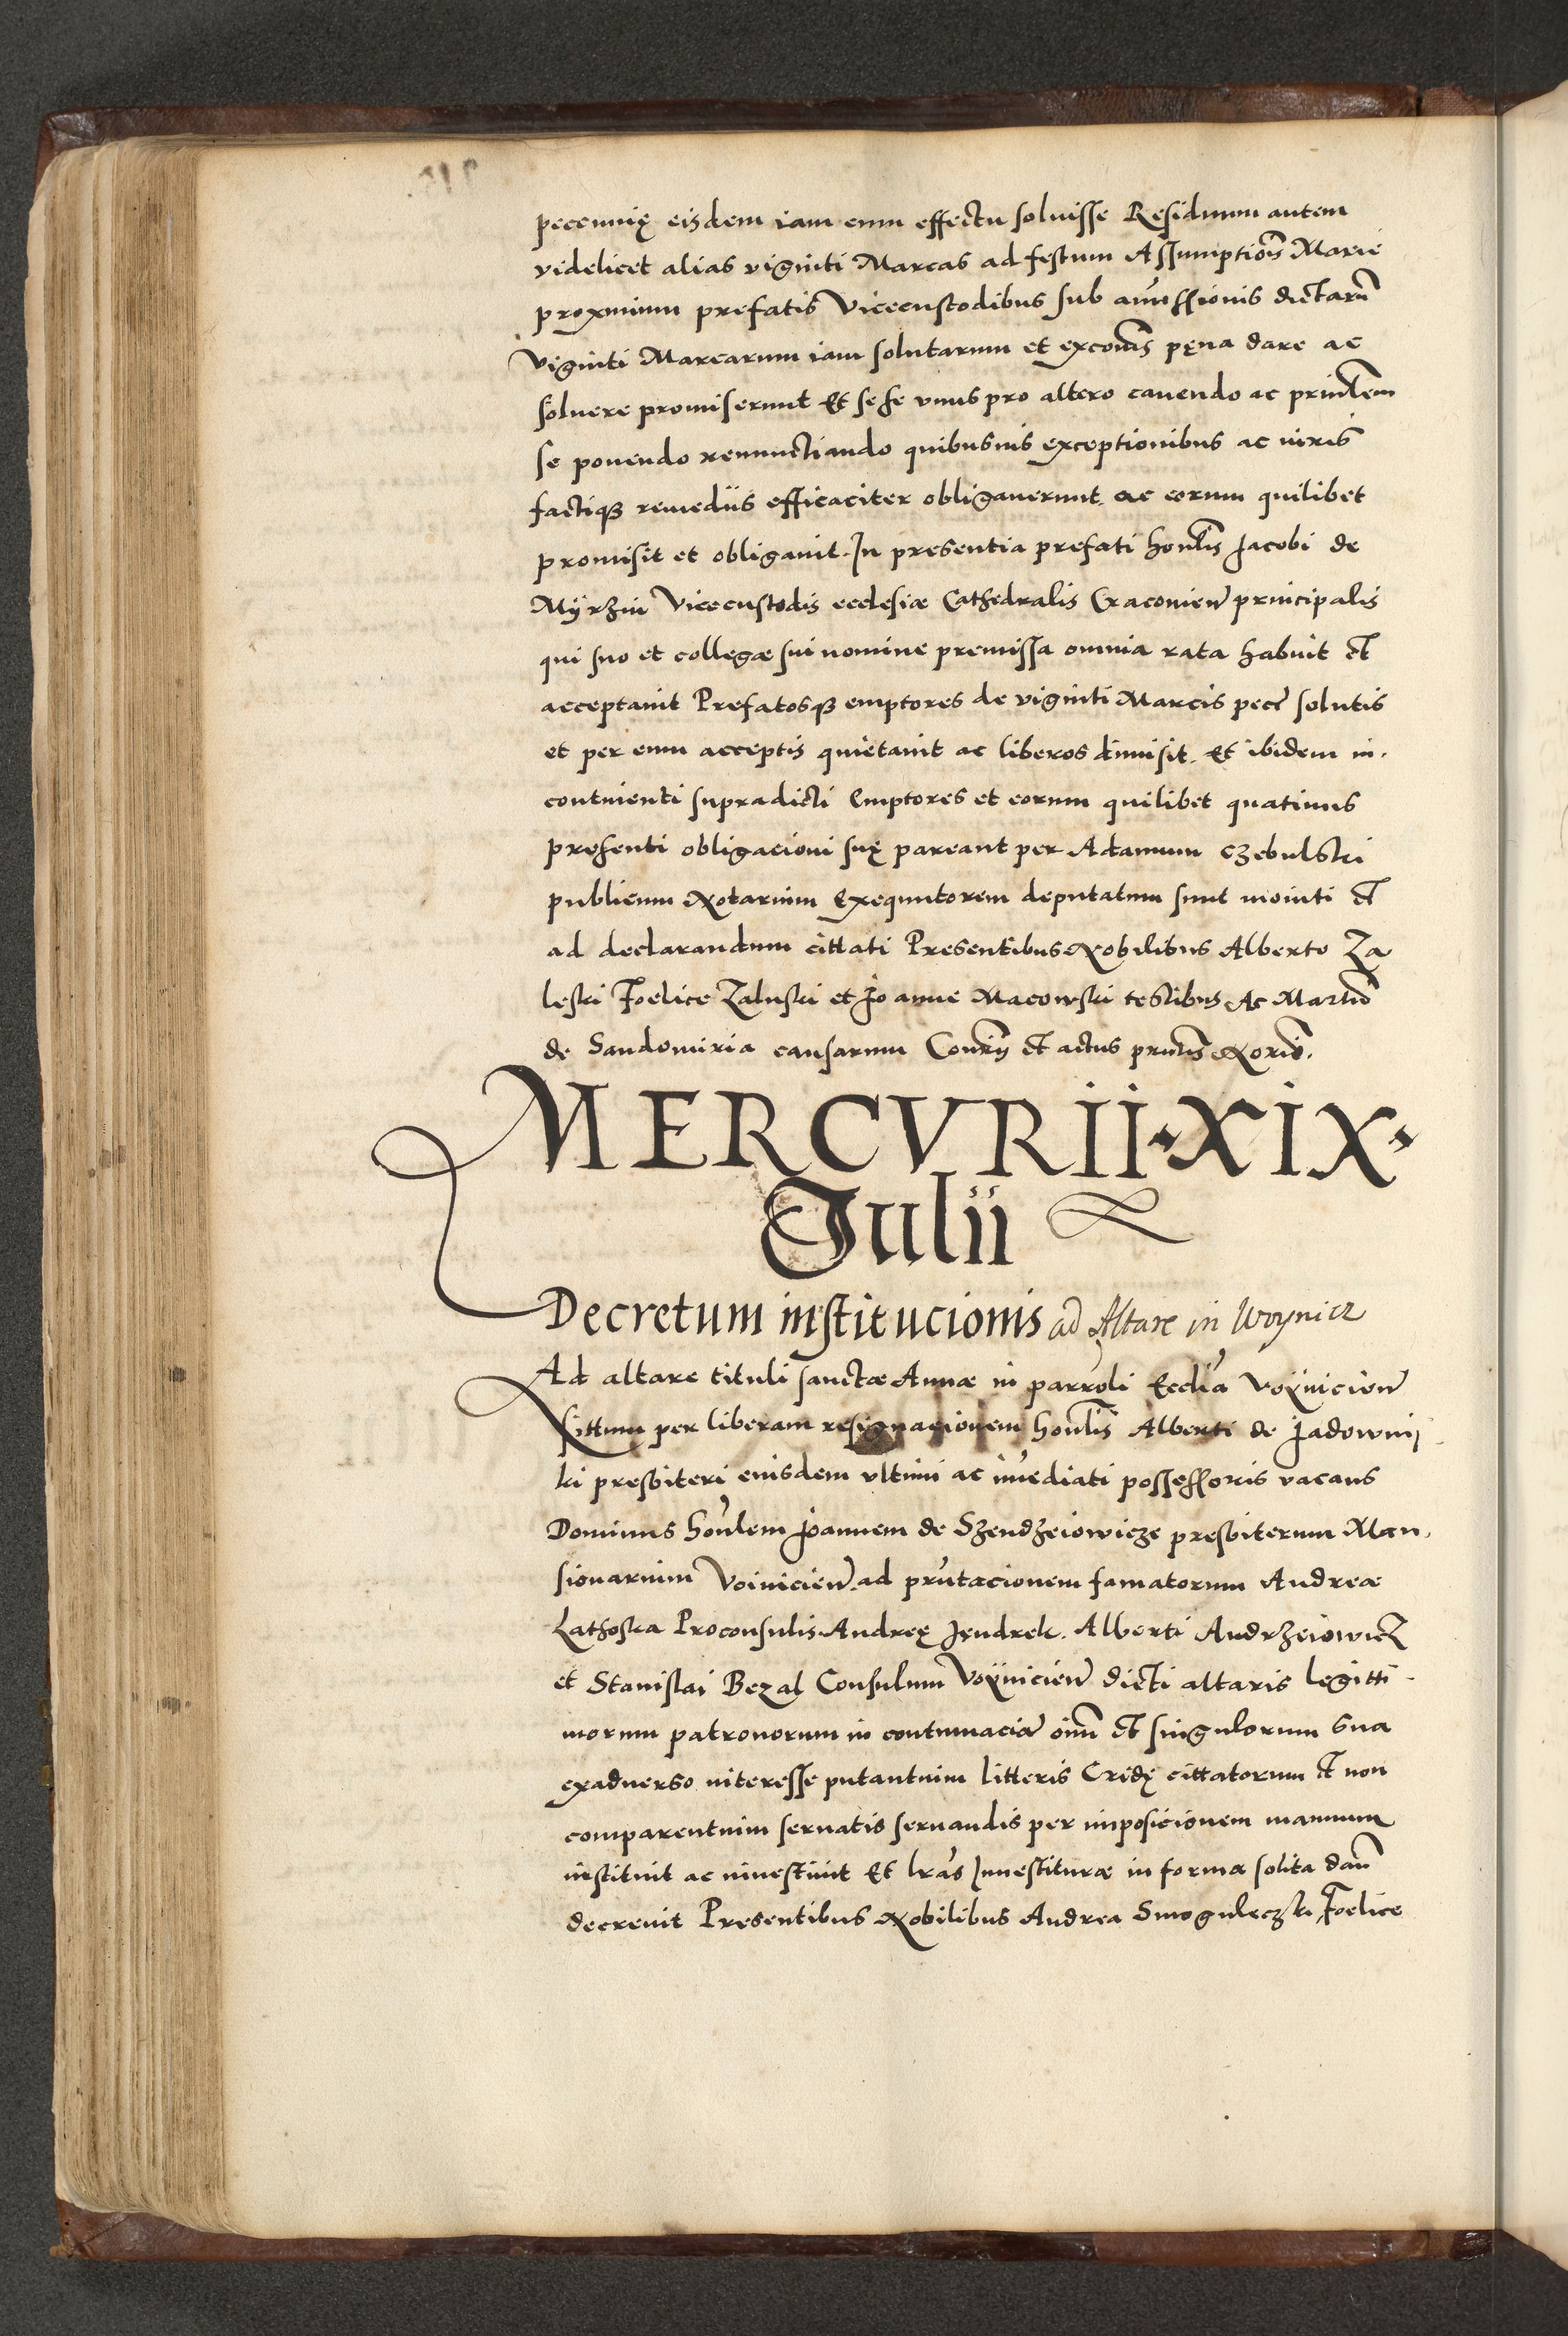 pecennię eisdem iam cum effectu soluisse Residuum autem
videlicet alias viginti Marcas ad festum Assumptiõis Marie
proximum prefatis Vicecustodibus sub amissionis dictarũ
viginti Marcarum iam solutarum et excõnis pęna dare ac
soluere promiserunt Et sese vnus pro altero cauendo ac
se ponendo renunctiando quibusuis exceptionibus ac iuris
factiqꝫ remediis efficaciter obligauerunt ac eorum quilibet
promisit et obligauit. In presentia prefati honlis Jacobi de
Mÿrzin Vicecustodis ecclesiæ Cathedralis Cracouien principalis
qui suo et collegæ sui nomine premissa omnia rata habuit et
acceptauit Prefatosqꝫ emptores de viginti Marcis pecc̃ solutis
et per eum acceptis quietauit ac liberos dimisit. Et ibidem in.
continenti supradicti Emptores et eorum quilibet quatinus
presenti obligacioni suę pareant per Adamum Czebulski
publicum Notarium Exequutorem deputatum sunt moniti et
ad declarandum cittati Presentibus Nobilibus Alberto Za
leski Foelice Zaluski et Joanne Macowski testibus Ac Martiñ
de Sandomiria causarum Coñrÿ et actus pñtis Norio.
MERCVRII·XIX·
Julii
Decretum institucionis ad Altare in Woynicz
Ad altare tituli sanctæ Annæ in parroli Ecclia Voÿnicien
Sittum per liberam resignacionem honlis Alberti de Jadownij
ki presbiteri eiusdem vltimi ac imediati possessoris vacans
Dominus honlem Joannem de Szendzeiowicze presbiterum Man,
sionarium Voinicien. ad pñtacionem famatorum Andreæ
Lathoska Proconsulis Andreę Jendrek. Alberti Andrzeiowicz
et Stanislai Bezal Consulum Voÿnicien dicti altaris legitti-
morum patronorum in contumacia om̃ et singulorum sua
exaduerso interesse putantium litteris Cridę cittatorum et non
comparentium seruatis seruandis per imposicionem manuum
instituit ac inuestiuit Et lras Inuestituræ in forma solita dan
decreuit Presentibus Nobilibus Andrea Smoguleczki Foelice